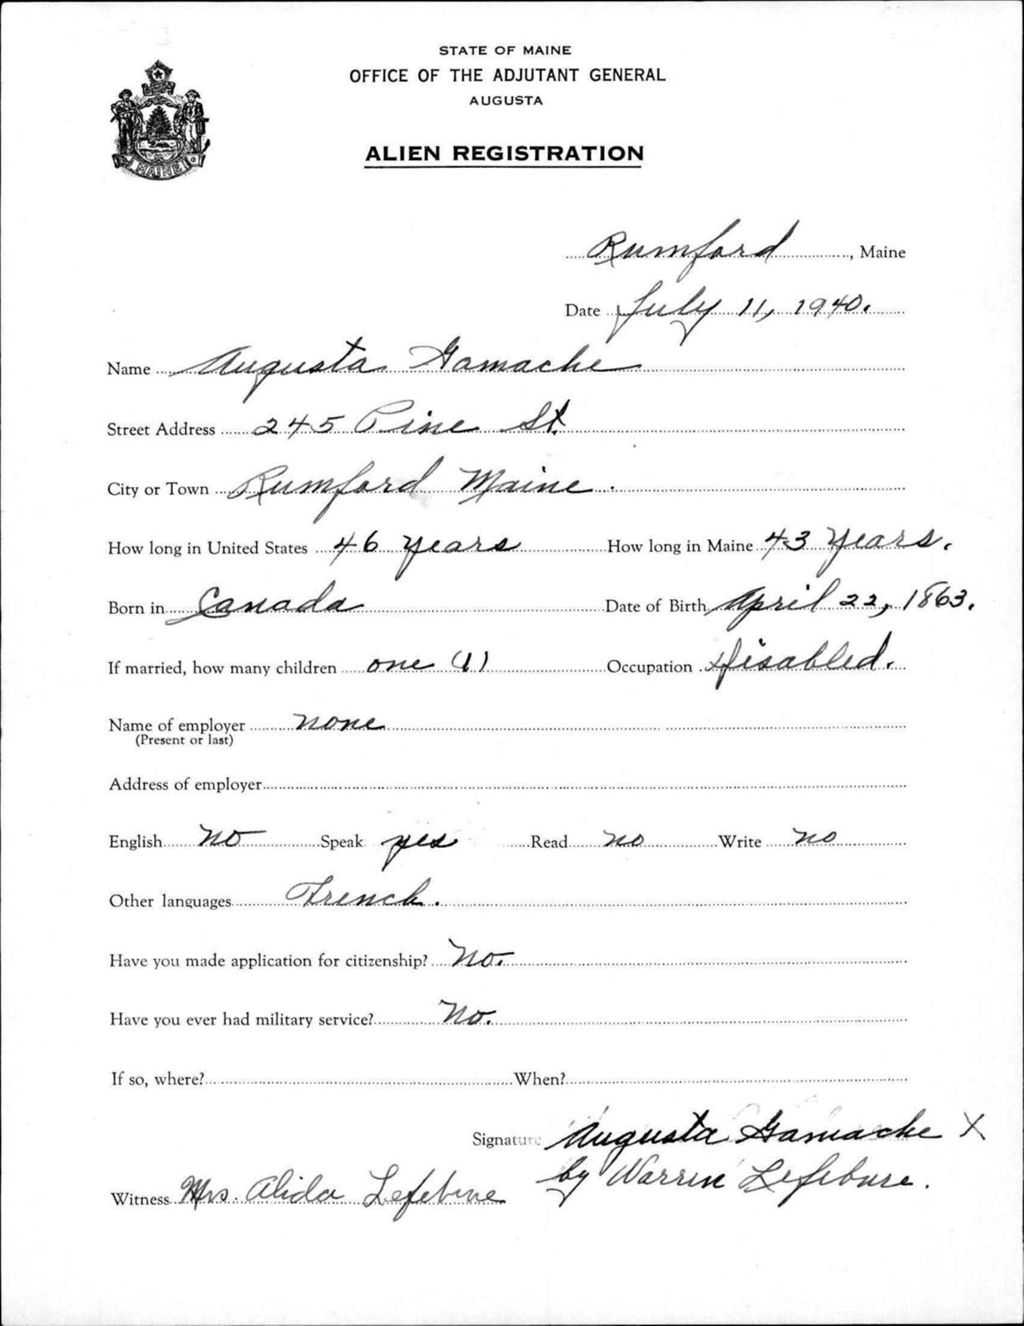 STATE OF MAINE
OFFICE OF THE ADJUTANT GENERAL
AUGUSTA
ALIEN REGISTRATION
MAINE
Rumford, Maine
Date July 11, 1940.
Name Augusta Gamache
Street Address 245 Pine St.
City or Town Rumford Maine.
How long in United States 46 years How long in Maine 43 Years.
Born in Canada Date of Birth April 22, 1863.
If married, how many children one (1) Occupation Disabled.
Name of employer none
(Present or last)
Address of employer
English No Speak yes Read no Write no
Other languages French.
Have you made application for citizenship? No.
Have you ever had military service? No.
If so, where? When?
Signature Augusta Gamache X
by Warren Lefebvre.
Witness Mrs. Alida Lefebvre